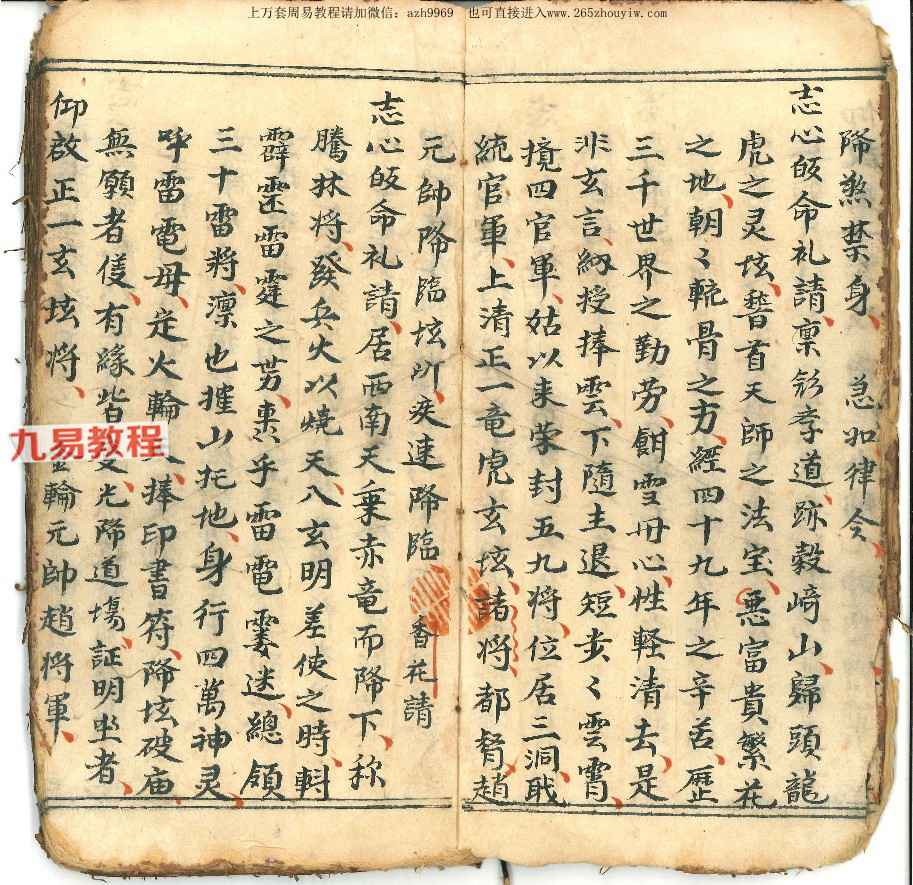 上万套周易教程请加微信：azh9969　也可直接进入www.265zhouyiw.com
降煞禁身、急如律令、
志心皈命礼請、禀 孝道、跡穀崎山、歸頭龍
虎之灵坛、啓首天師之法宝、悪富貴繁花
之地、朝〻 骨之方、經四十九年之辛苦、歴
三千世界之勤劳、 雪 心、性軽清去、是
非玄言、 授捧雲、下隨土退、短歩〻雲霄、
四官軍、姑以来蒙封五九将、位居三洞戢、
統官軍、上清正一竜虎玄坛、諸将、都督趙
元帥降臨坛所、疾速降臨　香花請
志心皈命礼請、居西南天乗赤竜而降下、称
騰林将、發兵火以燒天、八玄明差使之時、
霹 雷霆之 、 乎雷電 迷、總領
三十雷将、凛也摧山 地、身行四萬神灵、
呼雷電母、走火輪 、捧印書符、降坛破庙、
無願者 、有緣皆 、光降道場、証明坐者、
仰啟正一玄坛将、 輪元帥趙将軍、
九易教程